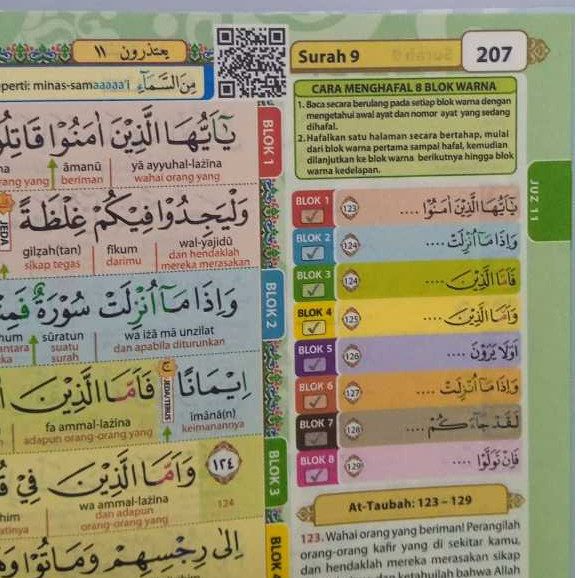 يعتذرون ١١
Surah 9
207
eperti: minas-samaaaaa'i مِنَ السَّمَآءِ
CARA MENGHAFAL 8 BLOK WARNA
1. Baca secara berulang pada setiap blok warna dengan
mengetahui awal ayat dan nomor ayat yang sedang
dihafal.
2. Hafalkan satu halaman secara bertahap, mulai
dari blok warna pertama sampai hafal, kemudian
dilanjutkan ke blok warna berikutnya hingga blok
warna kedelapan.
JUZ 11
BLOK 1
يٰٓاَيُّهَا الَّذِيْنَ اٰمَنُوْا
āmanū yā ayyuhal-lażīna
rang yang beriman wahai orang yang
وَلْيَجِدُوْا فِيْكُمْ غِلْظَةً
JEDA
gilẓah(tan) fīkum wal-yajidū
sikap tegas darimu dan hendaklah
mereka merasakan
BLOK 2
وَاِذَا مَآ اُنْزِلَتْ سُوْرَةٌ
hum sūratun wa iżā mā unzilat
antara suatu dan apabila diturunkan
ka surah
اِيْمَانًا فَاَمَّا الَّذِيْنَ
JEDA/TERUS
fa ammal-lażīna īmānā(n)
adapun orang-orang yang keimanannya
BLOK 3
١٢٤ وَاَمَّا الَّذِيْنَ فِيْ
him wa ammal-lażīna 124
atinya dan adapun
orang-orang yang
BLOK 4
اِلٰى رِجْسِهِمْ وَمَاتُوْا
BLOK 1 123 يٰٓاَيُّهَا الَّذِيْنَ اٰمَنُوْا ....
BLOK 2 124 وَاِذَا مَآ اُنْزِلَتْ ....
BLOK 3 124 فَاَمَّا الَّذِيْنَ ....
BLOK 4 125 وَاَمَّا الَّذِيْنَ ....
BLOK 5 126 اَوَلَا يَرَوْنَ ....
BLOK 6 127 وَاِذَا مَآ اُنْزِلَتْ ....
BLOK 7 128 لَقَدْ جَاۤءَكُمْ ....
BLOK 8 129 فَاِنْ تَوَلَّوْا ....
At-Taubah: 123 – 129
123. Wahai orang yang beriman! Perangilah
orang-orang kafir yang di sekitar kamu,
dan hendaklah mereka merasakan sikap
ketahuilah bahwa Allah